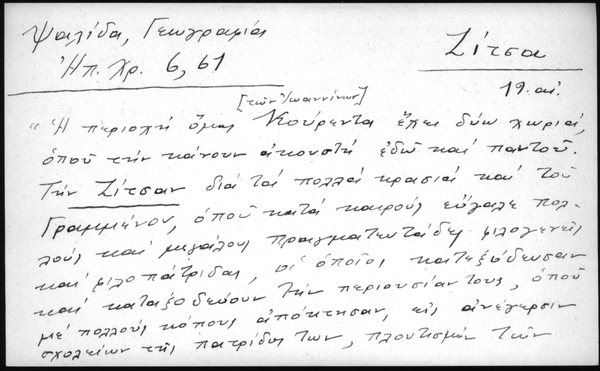 Ψαλίδα, Γεωγραφία
Ἠπ. Χρ. 6, 61
Ζίτσα
19. αἰ.
[τῶν Ἰωαννίνων]
"Ἡ περιοχή ὅμως Κούρεντα ἔχει δύω χωριά,
ὁποῦ τήν κάνουν ἀκουστή ἐδῶ καί παντοῦ.
Τήν Ζίτσαν διά τά πολλά κρασιά καί τοῦ
Γραμμένου, ὁποῦ κατά καιρούς εὔγαλε πολ-
λούς καί μεγάλους πραγματευτάδες φιλογενεῖς
καί φιλοπάτριδας, οἱ ὁποῖοι κατεξόδευσαν
καί καταξοδεύουν τήν περιουσίαν τους, ὁποῦ
μέ πολλούς κόπους ἀπόκτησαν, εἰς ἀνέγερσιν
σχολείων τῆς πατρίδος των, πλουτισμόν τῶν